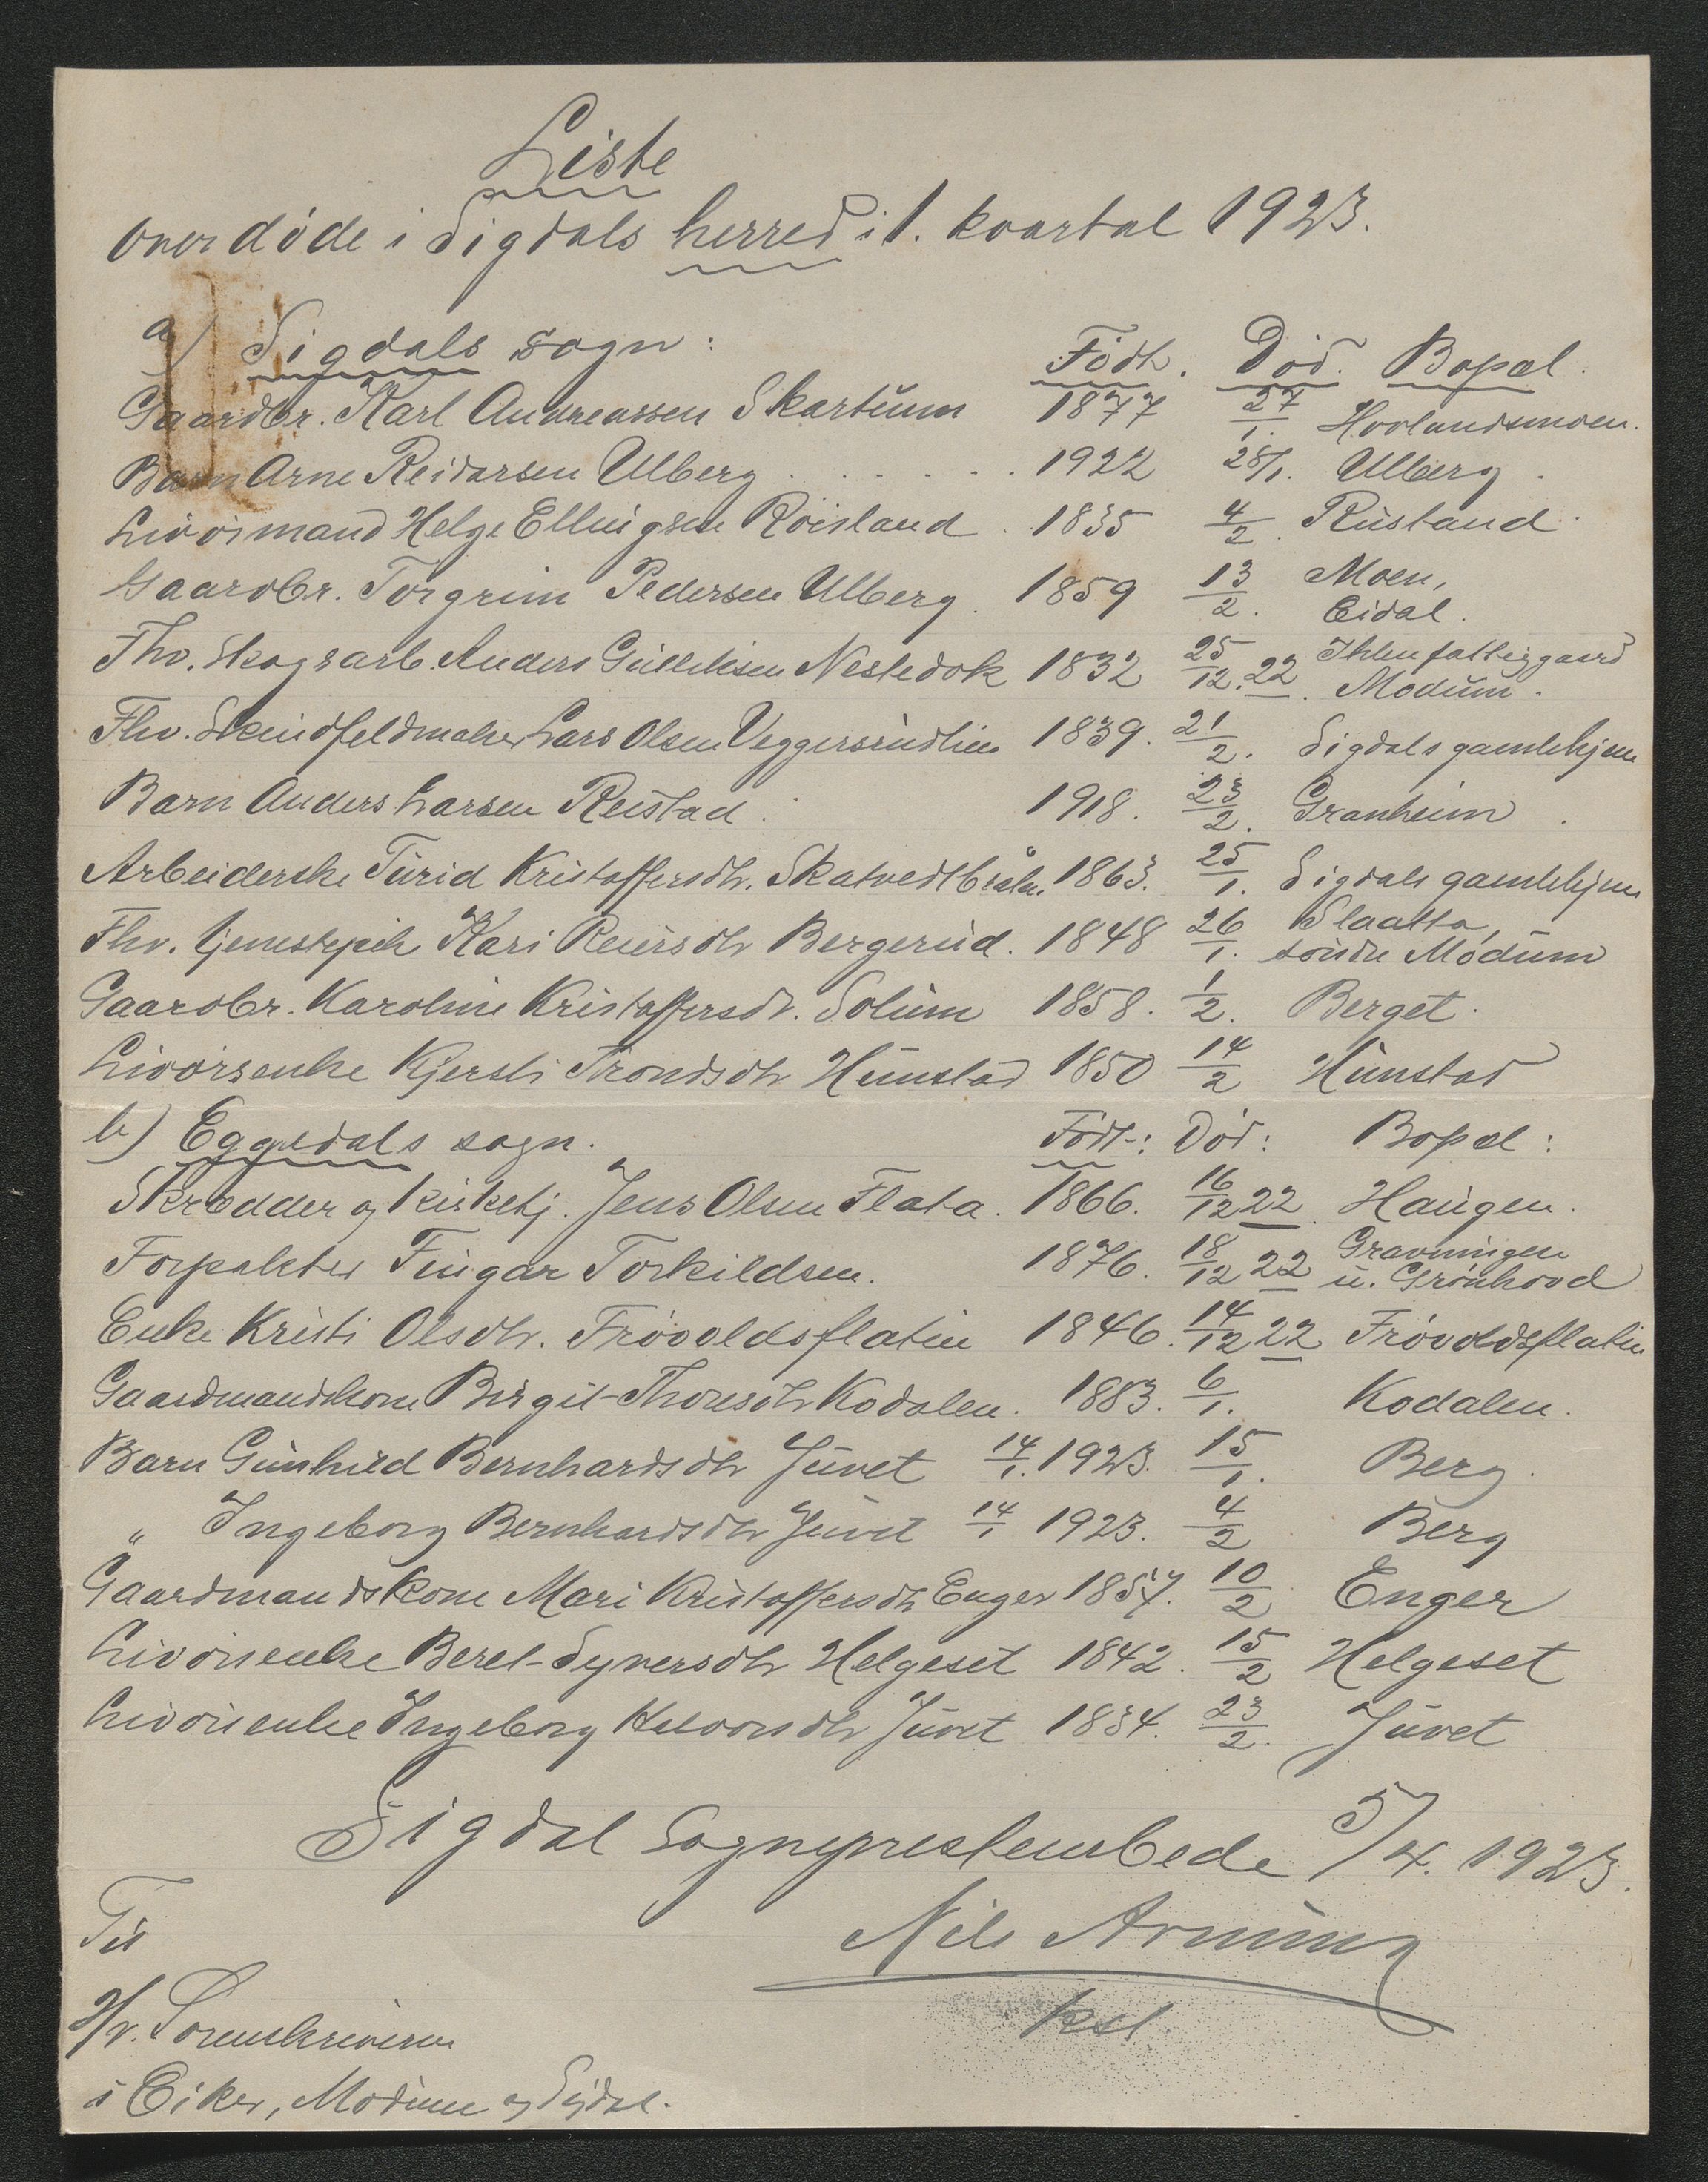 Liste
over døde i Sigdals herred i 1. kvartal 1923.
a) Sigdals sogn: Født. Død. Bopæl.
Gaardbr. Karl Andreassen Skartum 1877 27/1. Hovlandsmoen.
Barn Arne Reidarsen Ulberg . . . . . . 1922 28/1. Ulberg.
Livørsmand Helge Ellingsen Röisland . 1835 4/2. Rustand.
Gaardbr. Torgrim Pedersen Ulberg. 1859 13/2. Moen, Eidal.
Fhv. Skogsarb. Anders Gulliksen Nestedok 1832 25/12.22. Ihlen fattiggaard Modum.
Fhv. Skindfeldmaker Lars Olsen Veggersrudlien 1839. 21/2. Sigdals gamlehjem
Barn Anders Larsen Reistad. 1918. 23/2. Granheim.
Arbeiderske Turid Kristoffersdtr. Skatvedtbråtn. 1863. 25/1. Sigdals gamlehjem
Fhv. tjenestepike Kari Reiersdtr Bergerud. 1848 26/1. Slaatta, söndre Modum
Gaardbr. Karoline Kristoffersdr. Solum 1858. 1/2. Berget.
Livörsenke Kjersti Trondsdtr Hunstad 1850 14/2 Hunstad
b) Eggedals sogn. Født: Død: Bopæl:
Skrædder og kirketj. Jens Olsen Flata. 1866. 16/12 22. Haugen.
Forpakter Fingar Torkildsen. 1876. 18/12 22 Gravningen u. Grönhovd
Enke Kristi Olsdtr. Frövoldsflatin 1846. 14/12 22 Frövoldsflatin
Gaardmandskone Birgit Thoresdtr Kodalen. 1883. 6/1. Kodalen.
Barn Gunhild Bernhardsdtr Juvet 14/1. 1923. 15/1. Berg.
" Ingeborg Bernhardsdtr Juvet 14/1 1923. 4/2 Berg
Gaardmandskone Mari Kristoffersdtr Enger 1857. 10/2 Enger
Livörsenke Beret Syversdtr Helgeset 1842. 15/2 Helgeset
Livörsenke Ingeborg Halvorsdtr Juvet 1834. 23/2. Juvet
Sigdal Sogneprestembede 5/4. 1923.
Til Nils Arnung
ksl.
H/r. Sorenskriveren
i Eiker, Modum og Sigdal.